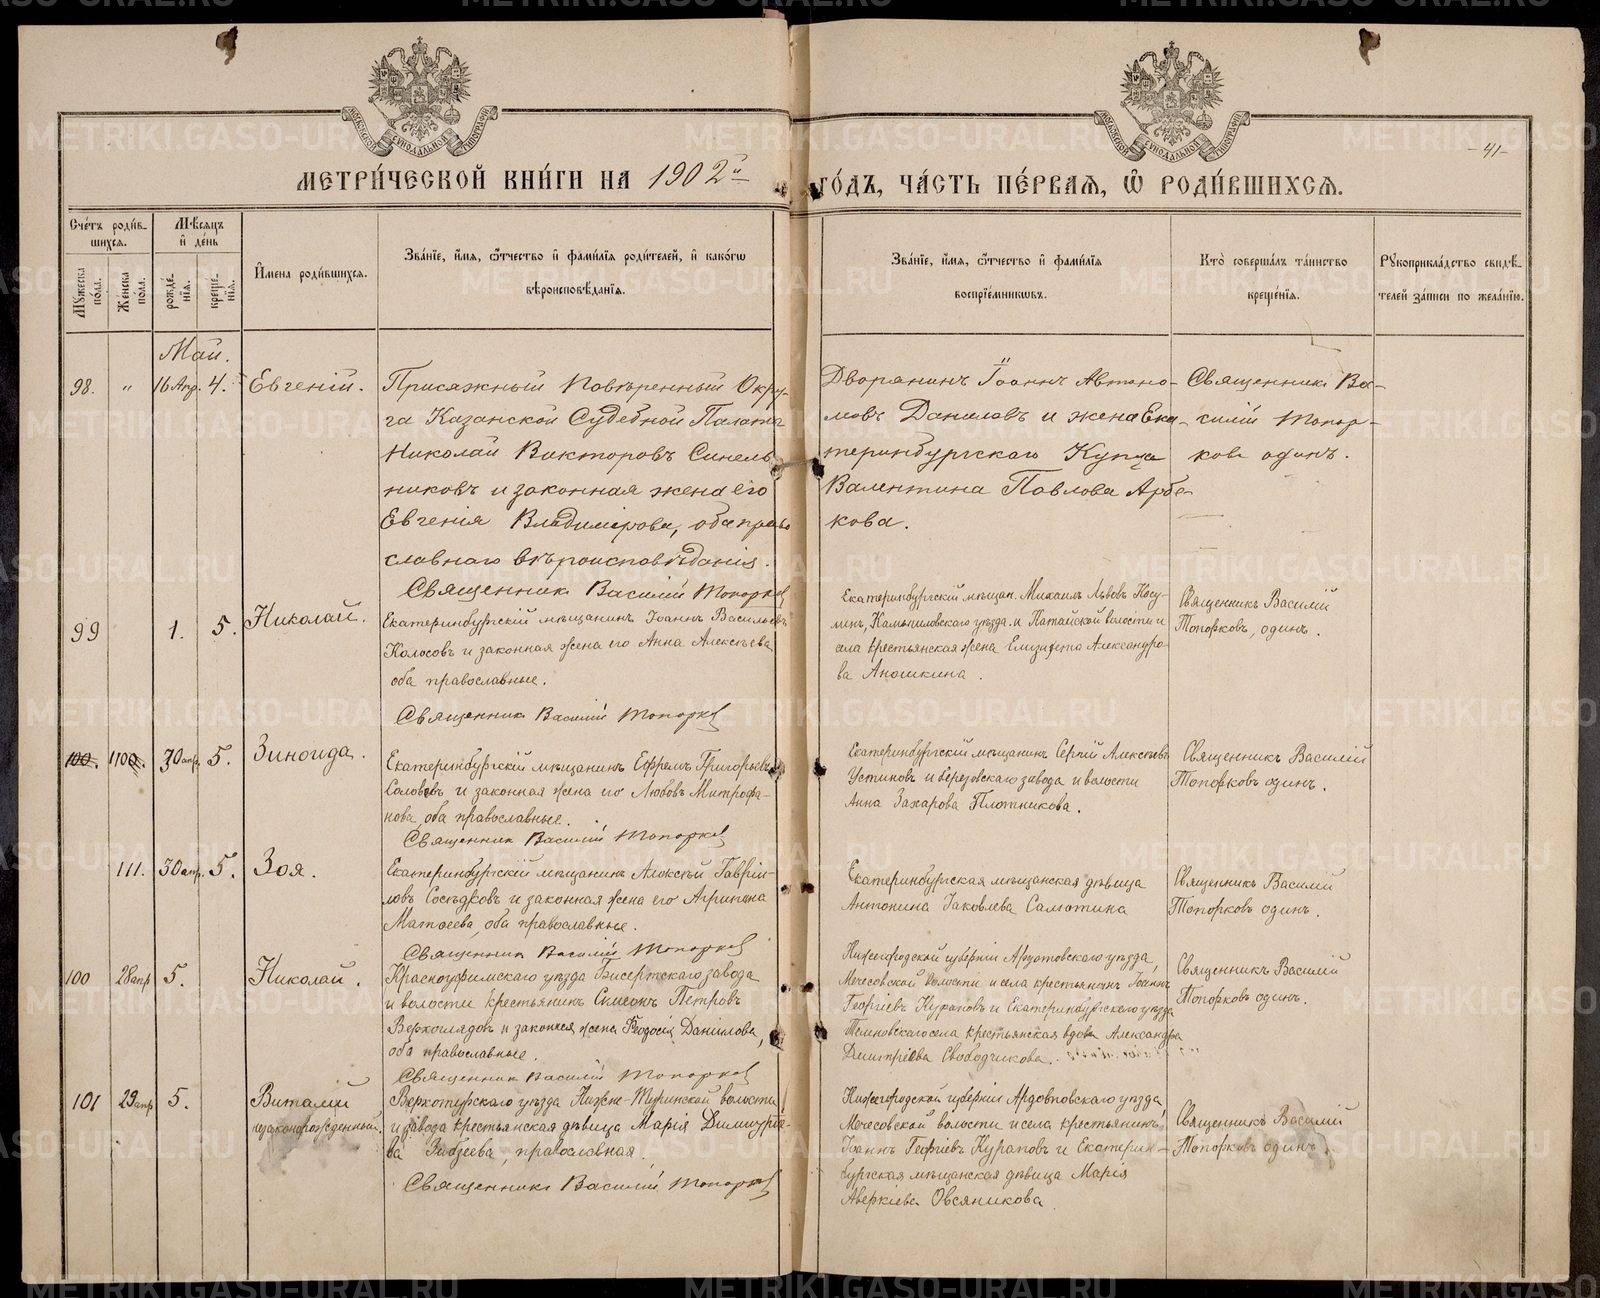 МОСКОВСКОЙ СѴНОДАЛЬНОЙ ТИПОГРАФІИ
МОСКОВСКОЙ СѴНОДАЛЬНОЙ ТИПОГРАФІИ
-41-
МЕТРИ́ЧЕСКОЙ КНИ́ГИ НА 1902й
ГО́ДЪ, ЧА́СТЬ ПЕ́РВАѦ, Ѡ҆ РОДИ́ВШИХСѦ.
Сче́тъ роди́в-
шихсѧ.
Мꙋ́жеска по́ла.
Же́нска по́ла.
Мѣ́сѧцъ
и҆ де́нь
рожде́-
нїѧ.
креще́-
нїѧ.
И҆мена роди́вшихсѧ.
Зва́нїе, и҆́мѧ, ѻ҆́тчество и҆ фами́лїѧ роди́телей, и҆ како́гѡ
вѣроисповѣ́данїѧ.
Зва́нїе, и҆́мѧ, ѻ҆́тчество и҆ фами́лїѧ
воспрїе́мникѡвъ.
Кто̀ соверша́лъ та́инство
креще́нїѧ.
Рꙋкоприкла́дство свидѣ́-
телей за́писи по жела́нїю.
Май.
98. " 16 Апр. 4. Евгеній.
Присяжный Повѣренный Окру-
га Казанской Судебной Палаты
Николай Викторовъ Синель-
никовъ и законная жена его
Евгенія Владимірова, оба право
славнаго вѣроисповѣданія.
Священникъ Василій Топорковъ
Дворянинъ Іоаннъ Автоно-
мовъ Даниловъ и жена Ека-
теринбургскаго Купца
Валентина Павлова Арбе-
кова.
Священникъ Ва-
силій Топор-
ковъ одинъ.
99 1. 5. Николай.
Екатеринбургскій мѣщанинъ Іоаннъ Васильевъ
Колосовъ и законная жена его Анна Алексѣева
оба православные.
Священникъ Василій Топорковъ
Екатеринбургскій мѣщан. Михаилъ Львовъ
Камышловскаго уѣзда и Катайской волости и
села крестьянская жена Елизавета Александро-
ва Аношкина.
Священникъ Василій
Топорковъ, одинъ.
100. 110. 30 апр. 5. Зинаида.
Екатеринбургскій мѣщанинъ Ефремъ Григорьевъ
Соловьевъ и законная жена его Любовь Митрофа-
нова, оба православные.
Священникъ Василій Топорковъ
Екатеринбургскій мѣщанинъ Сергій Алексѣевъ
Устиновъ и березовскаго завода и волости
Анна Захарова Плотникова.
Священникъ Василій
Топорковъ одинъ.
111. 30 апр. 5. Зоя.
Екатеринбургскій мѣщанинъ Алексѣй Гаврiи-
ловъ Сосѣдковъ и законная жена его Агрипина
Матѳеева, оба православные.
Священникъ Василій Топорковъ
Екатеринбургская мѣщанская дѣвица
Антонина Іаковлева Салютина
Священникъ Василій
Топорковъ одинъ.
100 28 апр 5. Николай.
Красноуфимскаго уѣзда Бисертскаго завода
и волости крестьянинъ Симеонъ Петровъ
Верхоглядовъ и законная жена Ѳеодосія Данилова,
оба православные.
Священникъ Василій Топорковъ
Нижегородской губерніи уѣзда,
Мечесовской волости и села крестьянинъ Іоаннъ
Георгіевъ Кураповъ и Екатеринбургскаго уѣзда
села крестьянская вдова Александра
Димитріева Свободчикова.
Священникъ Василій
Топорковъ одинъ.
101 29 апр 5. Виталій
незаконорожденный.
Верхотурскаго уѣзда Нижне-Туринской волости
и завода крестьянская дѣвица Марія Димитріе-
ва православная.
Священникъ Василій Топорковъ
Нижегородской губерніи Ардатовскаго уѣзда,
Мечесовской волости и села крестьянинъ
Іоаннъ Георгіевъ Кураповъ и Екатерин-
бургская мѣщанская дѣвица Марія
Аверкіева Овсяникова.
Священникъ Василій
Топорковъ одинъ.
METRIKI.GASO-URAL.RU